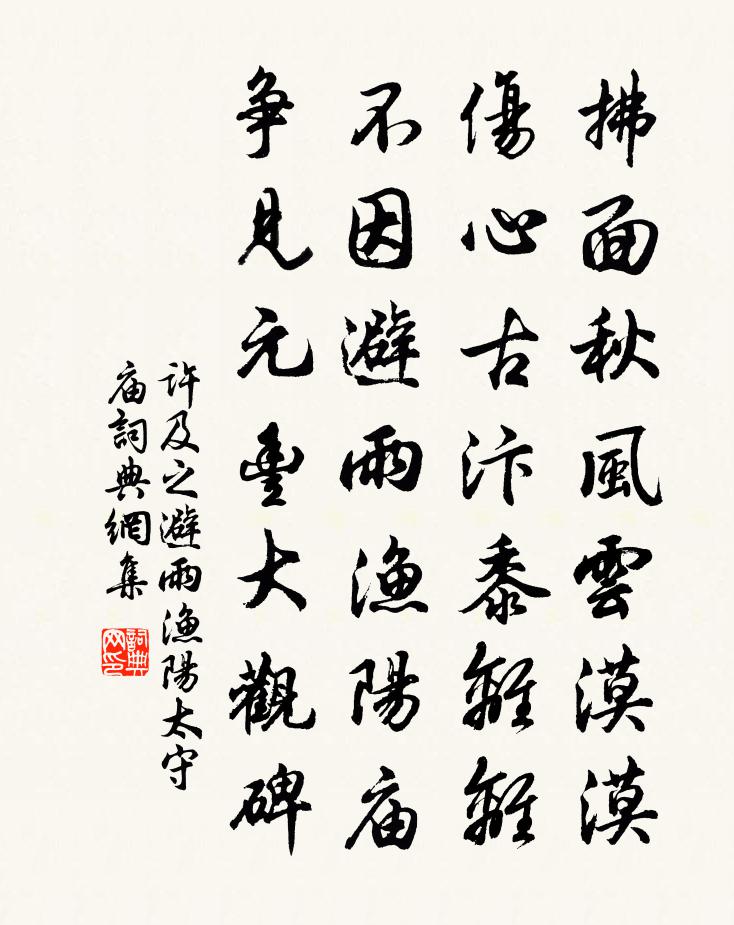 拂面秋風雲漠漠
傷心古汴黍離離
不因避雨漁陽庙
争見元豊大觀碑
許及之避雨漁陽太守
庙詞典網集
詞典网印